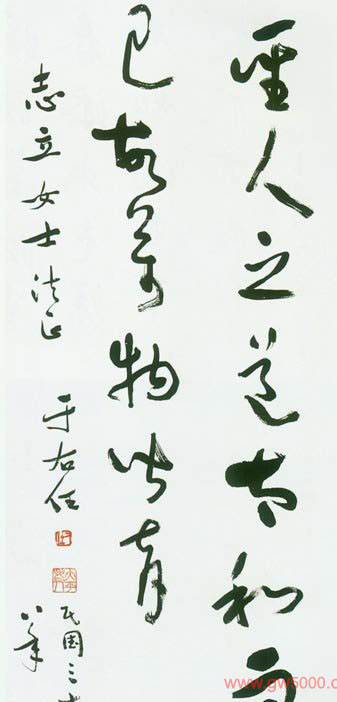 聖人之道太和而
已故萬物皆育
志立女士法正
于右任
民国三十
八年
www.gw5000.com